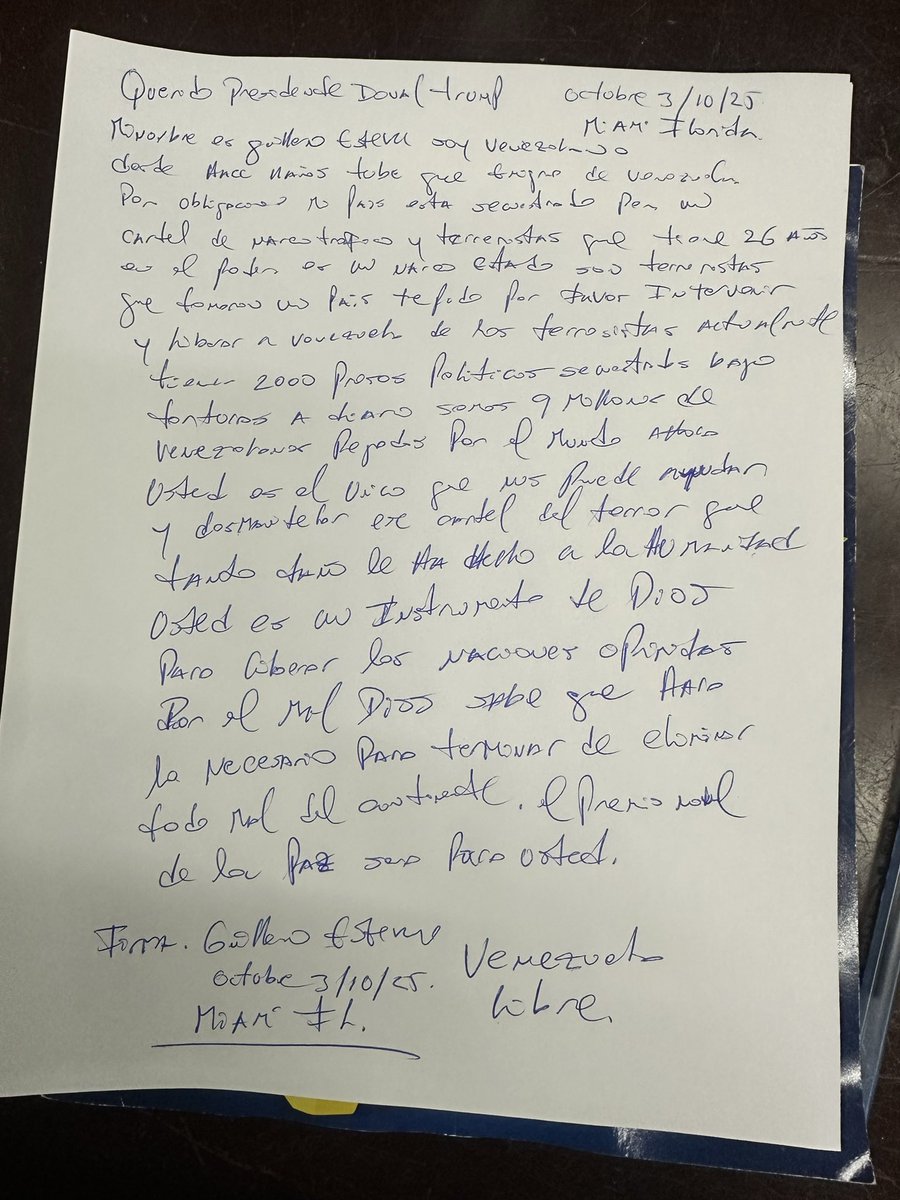 Querido Presidente Donal trump octubre 3/10/25
MiAMi Florida.
Minombre es guillermo Esteve soy venezolano
desde Hace años tube que de venezuela
Por obligacion mi Pais esta secuestrado por un
cartel de narcotrafico y terroristas que tiene 26 AÑOS
en el poder es un NARCO EStado son terroristas
que tomaron un Pais te pido por Favor Intervenir
y liberar a Venezuela de los terrosistas
tienen 2000 Presos Politicos secuestrados bajo
torturas A diario somos 9 Millones de
venezolanos Regados Por el Mundo
Usted es el Unico que nos Puede ayudar
y desmantelar ese cartel del terror que
tando daño le HA Hecho a la HUMANidad
Usted es un Instrumento de DiOS
Para liberar las NACiones oprimidas
Por el Mal DiOS sabe que Hara
lo Necesario Para terminar de eliminar
todo Mal del continente. el Premio nobel
de la PAZ sera Para Usted.
Firma. Guillermo Esteve
octubre 3/10/25.
MiAMi FL.
Venezuela
libre.